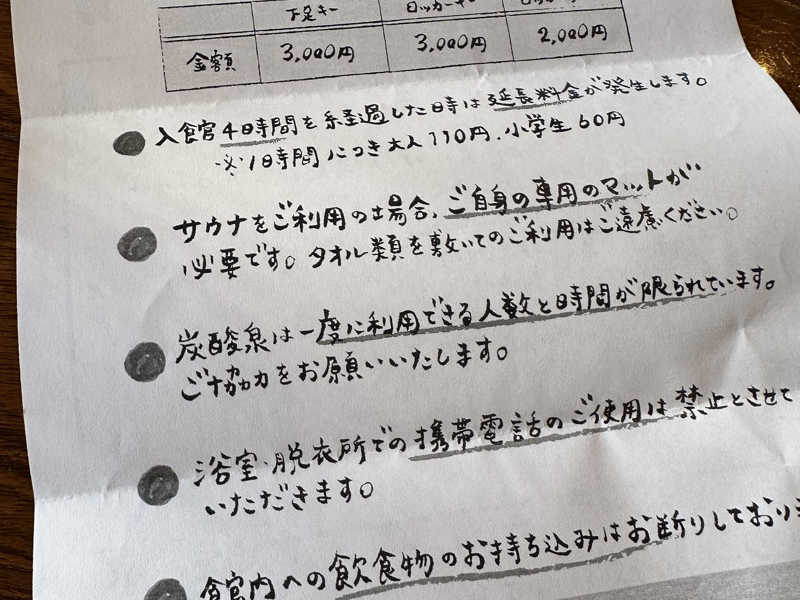 下足キー ロッカーキー
金額 3,000円 3,000円 2,000円
入館宮 4時間を経過した時は延長料金が発生します。
※1時間につき大人110円.小学生60円
サウナをご利用の場合、ご自身の専用のマットが
必要です。タオル類を敷いてのご利用はご遠慮ください。
炭酸泉は一度に利用できる人数と時間が限られています。
ご協力をお願いいたします。
浴室・脱衣所での携帯電話のご使用は禁止とさせて
いただきます。
館内への飲食物のお持ち込みはお断りしており